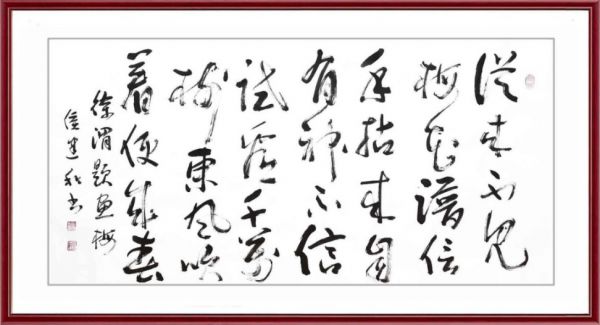 從来不見
梅花譜信
手拈来自
有神不信
試看千萬
樹東風吹
着便成春
徐渭題画梅